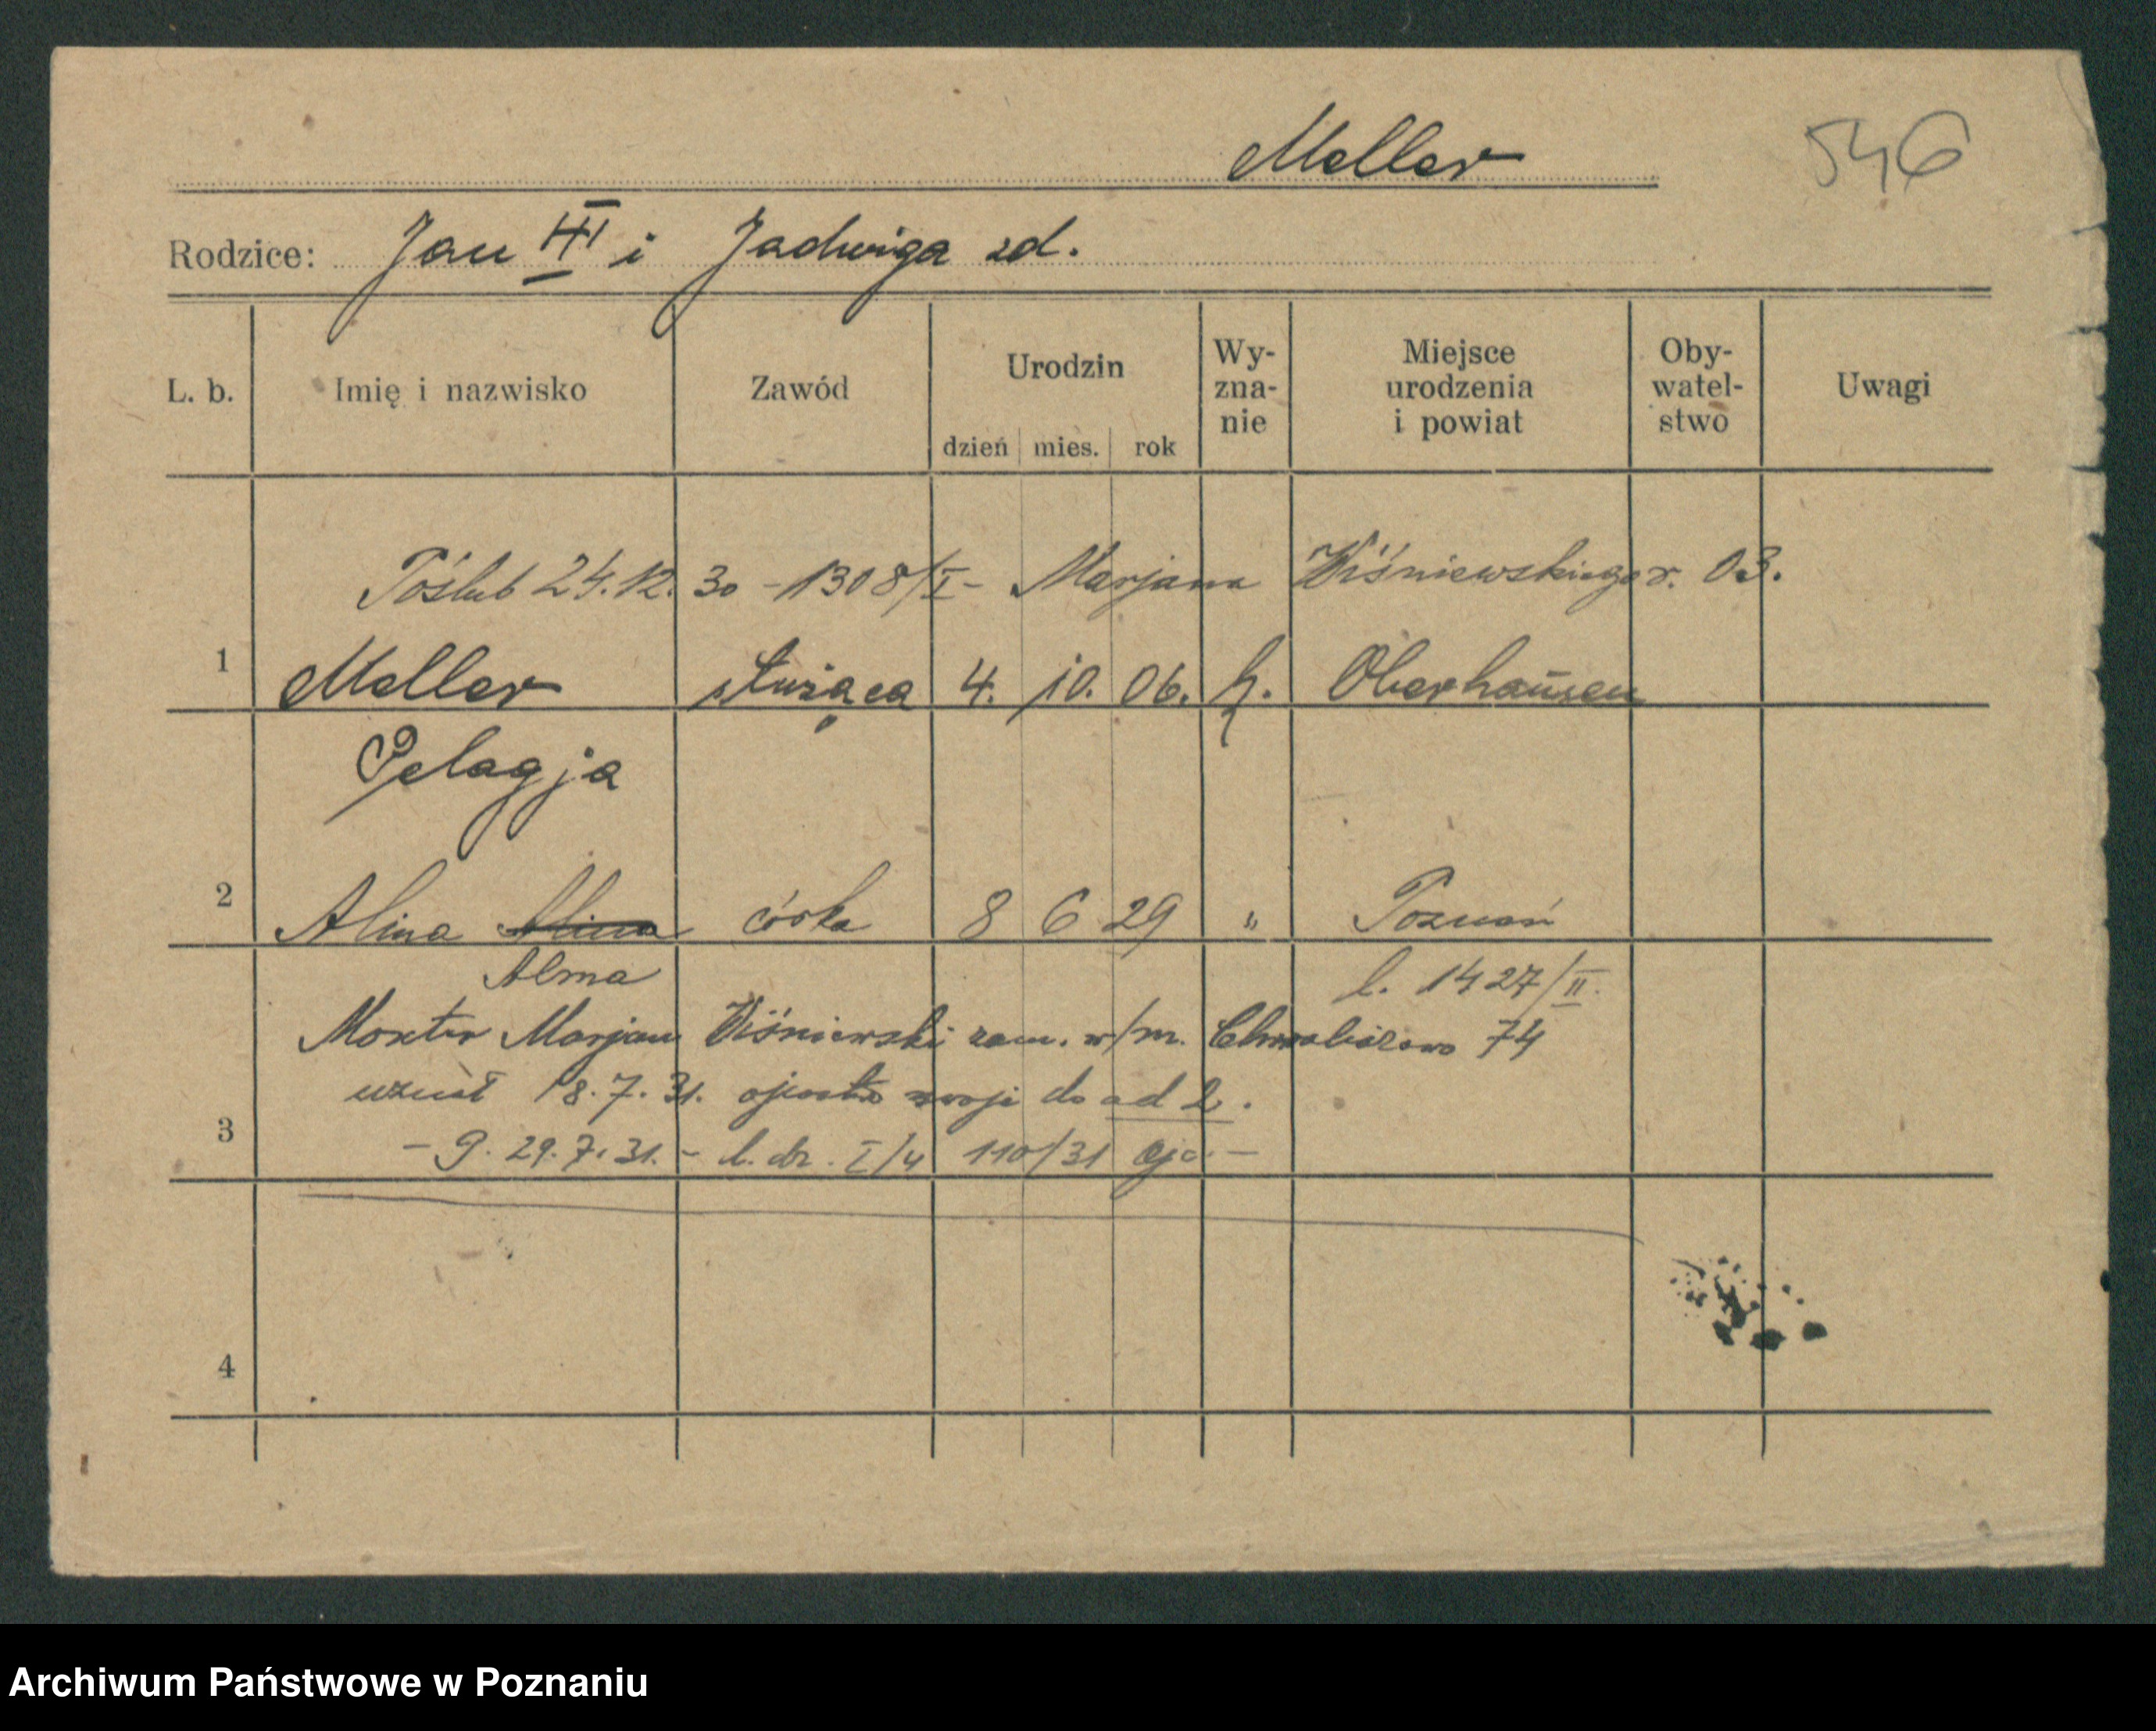 Meller
546
Rodzice: Jan III i Jadwiga zd.
L. b. Imię i nazwisko Zawód Urodzin dzień mies. rok Wy-zna-nie Miejsce urodzenia i powiat Oby-watel-stwo Uwagi
Poślub 24.12.30 - 1308/I - Marjana Wiśniewskiego r. 03.
1 Meller służąca 4. 10. 06. k. Oberhausen
Pelagja
2 Alina Alina córka 8 6 29 " Poznań
Alma l. 1427/II.
Monter Marjan Wiśniewski zam. w/m. 74
uznał 18.7.31. ojcostwo swoje do ad 2.
3 - G. 29.7.31. - l. dz. I/4 110/31
4
Archiwum Państwowe w Poznaniu